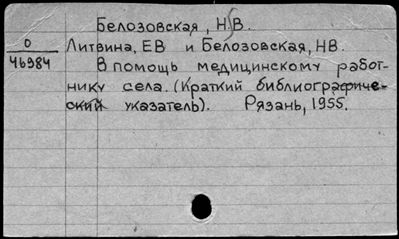 Белозовская, Н.В.
О
46984
Литвина, ЕВ и Белозовская, НВ.
В помощь медицинскому работ-
нику села. (Краткий библиографиче-
ский указатель). Рязань, 1955.